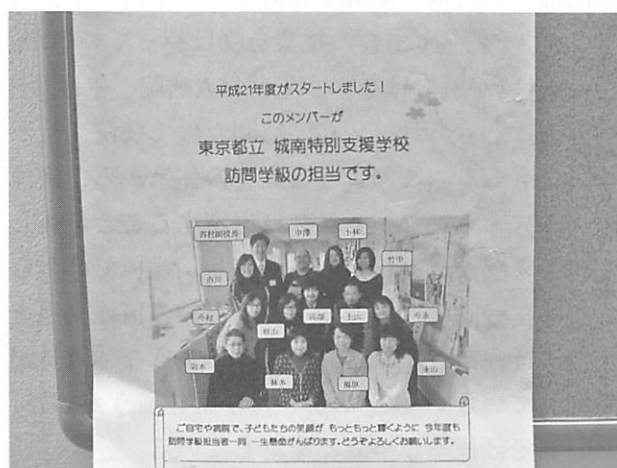 平成21年度がスタートしました！
このメンバーが
東京都立 城南特別支援学校
訪問学級の担当です。
西村副校長
中澤
小林
竹中
市川
今村
杉山
土山
今永
岩本
梅原
永山
ご自宅や病院で、子どもたちの笑顔が もっともっと輝くように 今年度も
訪問学級担当者一同 一生懸命がんばります。どうぞよろしくお願いします。